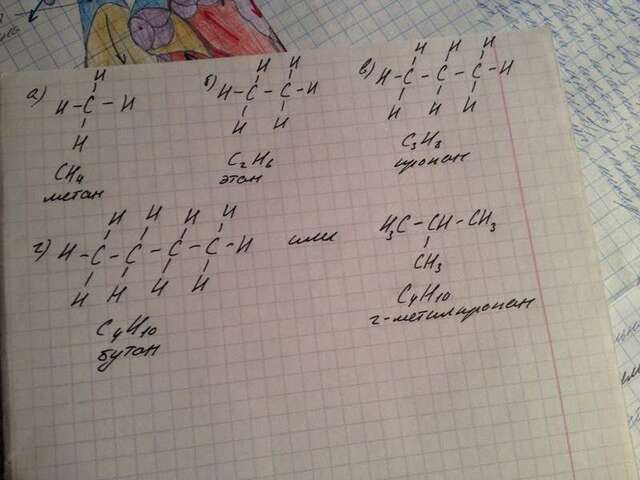 а)
H
H - C - H
H
CH4
метан
б)
H H
H - C - C - H
H H
C2H6
этан
в)
H H H
H - C - C - C - H
H H H
C3H8
пропан
г)
H H H H
H - C - C - C - C - H
H H H H
C4H10
бутан
или
H3C - CH - CH3
CH3
C4H10
2-метилпропан